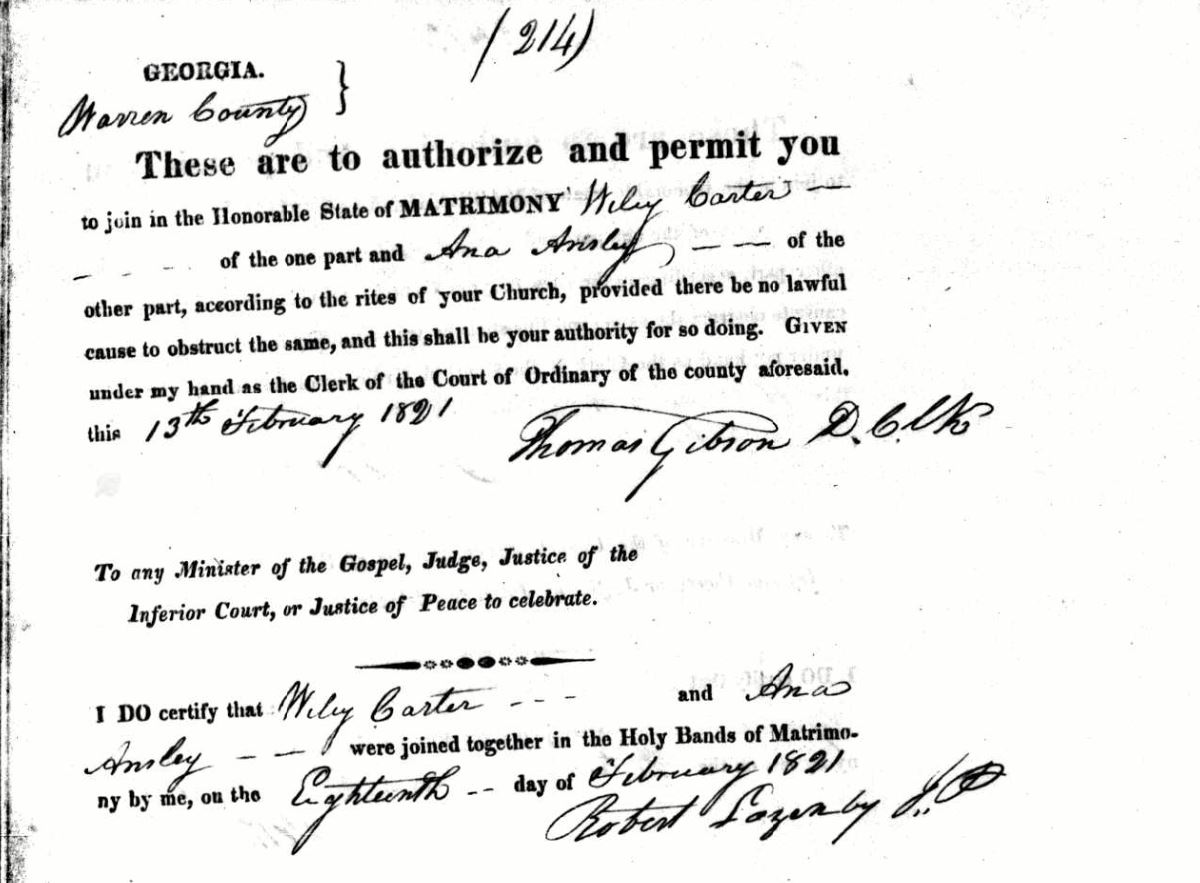 (214)
GEORGIA. }
Warren County
These are to authorize and permit you
to join in the Honorable State of MATRIMONY Wiley Carter —
- - - of the one part and Ana Ansley — — of the
other part, according to the rites of your Church, provided there be no lawful
cause to obstruct the same, and this shall be your authority for so doing. GIVEN
under my hand as the Clerk of the Court of Ordinary of the county aforesaid.
this 13th February 1821
Thomas Gibson D. C. Clk
To any Minister of the Gospel, Judge, Justice of the
Inferior Court, or Justice of Peace to celebrate.
I DO certify that Wiley Carter - - - and Ana
Ansley - — were joined together in the Holy Bands of Matrimo-
ny by me, on the Eighteenth -- day of February 1821
Robert Lazenby J. P